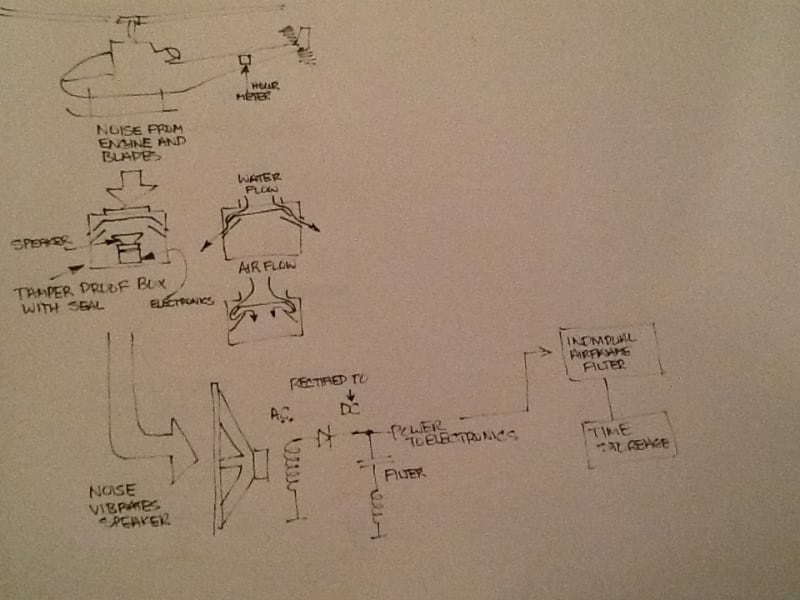 HOUR
METER
NOISE FROM
ENGINE AND
BLADES
WATER
FLOW
SPEAKER
AIR FLOW
TAMPER PROOF BOX
WITH SEAL
ELECTRONICS
INDIVIDUAL
AIRFRAME
FILTER
RECTIFIED TO
DC
A.C.
POWER
TO ELECTRONICS
TIME
FILTER
NOISE
VIBRATES
SPEAKER